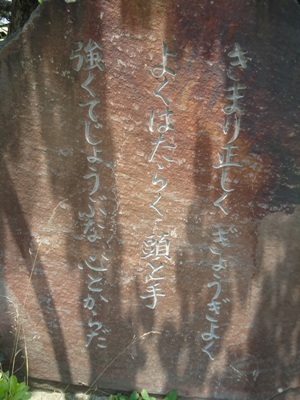 きまり正しくぎょうぎよく
よくはたらく頭と手
強くてじょうぶな心とからだ